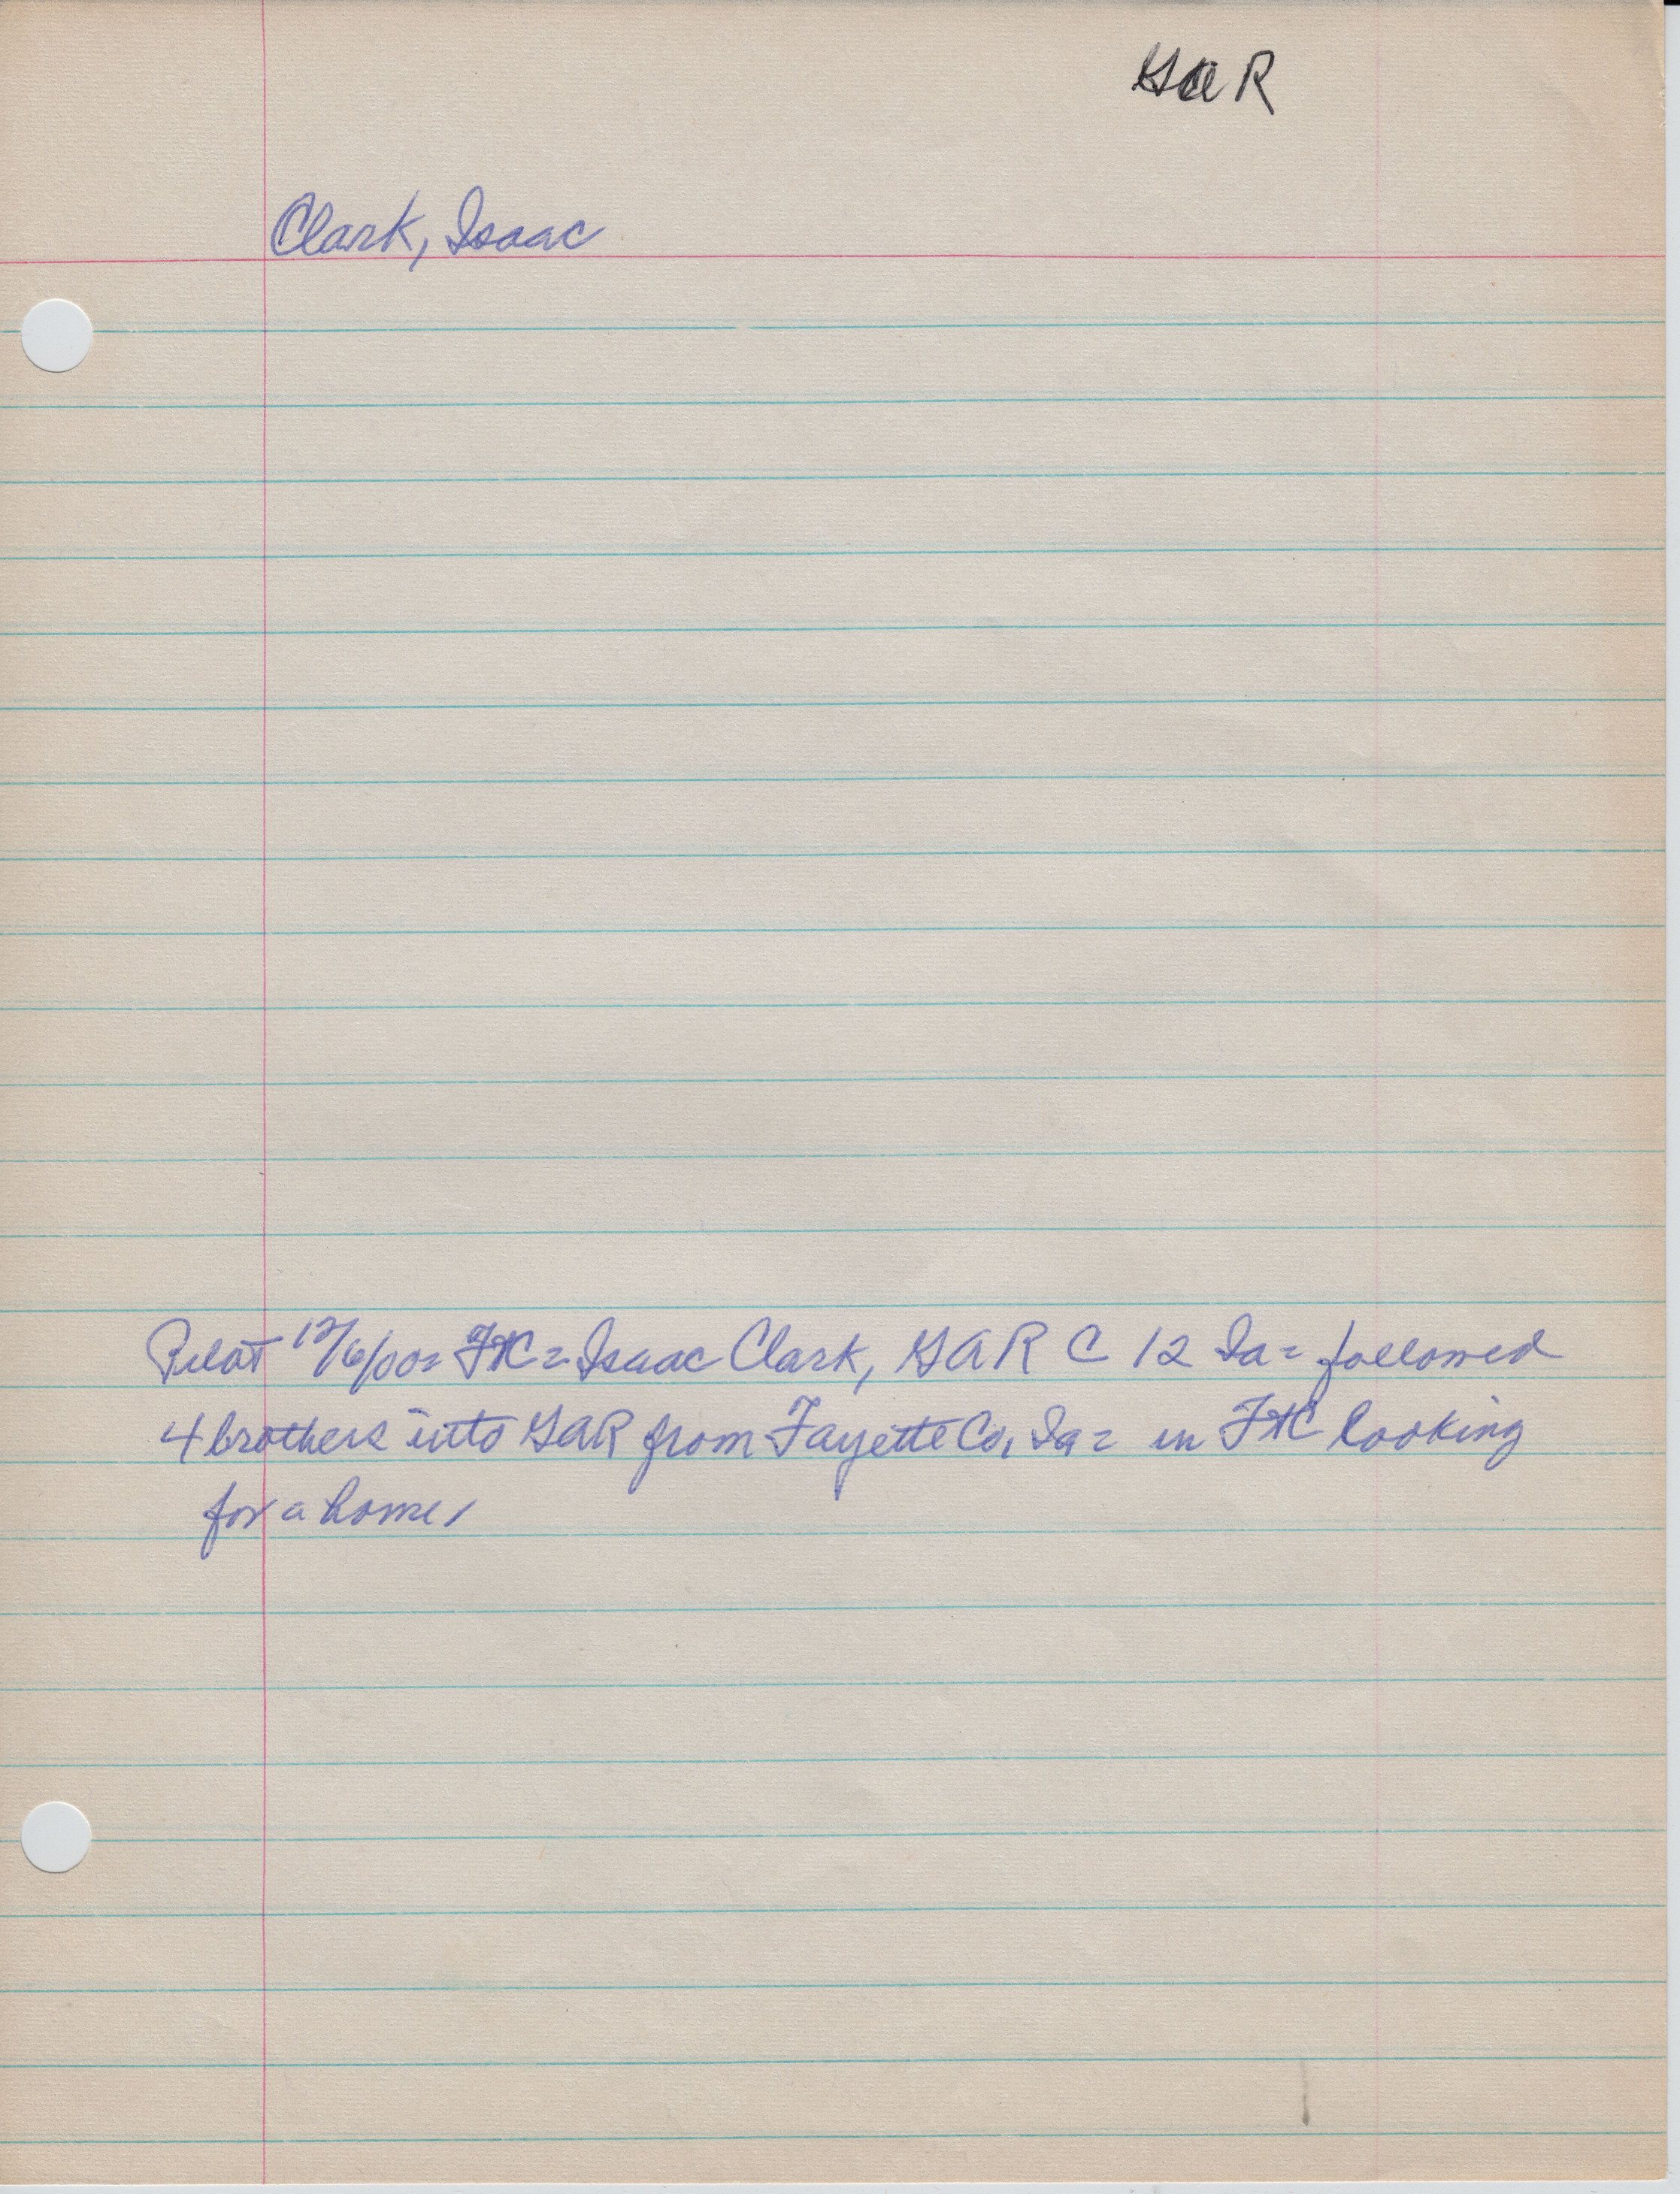 GAR
Clark, Isaac
Pilot 12/6/00= FTC= Isaac Clark, GAR C 12 Ia= followed
4 brothers into GAR from Fayette Co, Ia= in FTC looking
for a home,